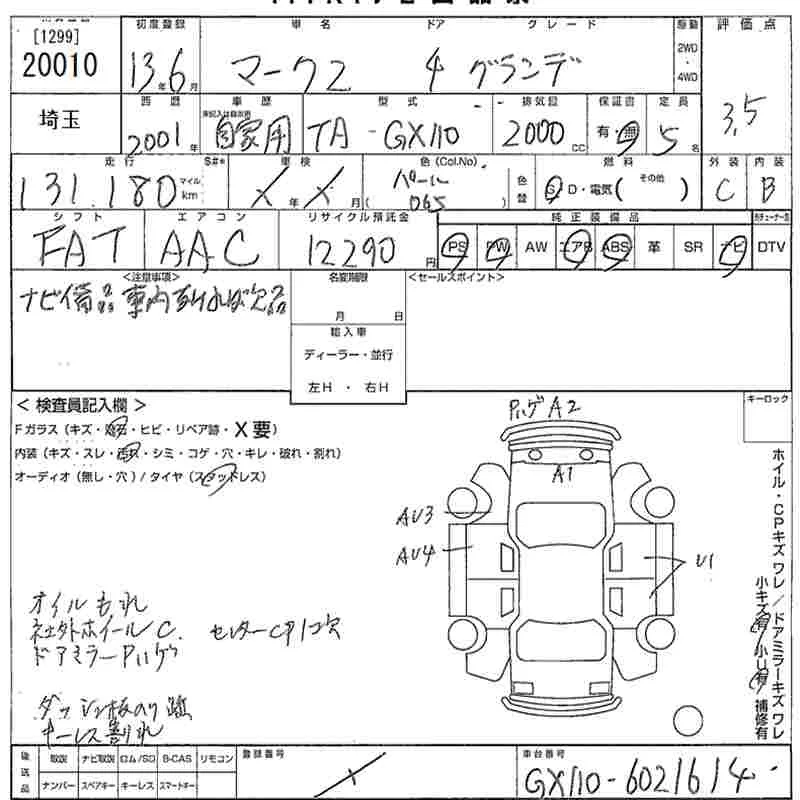 [1299]
20010
初度登録 車名 ドア グレード 駆動 評価点
13年6月 マーク2 4 グランデ 2WD・4WD
3,5
埼玉
西暦 車歴 型式 排気量 保証書 定員
2001年 自家用 TA-GX110 2000cc 有・無 5名
走行 S#* 車検 色(Col.No) 色替 燃料 外装 内装
131,180 マイル km 年 月 パール 065 G・D・電気( その他 ) C B
シフト エアコン リサイクル預託金 純正装備品
FAT AAC 12290円 PS PW AW エアB ABS 革 SR ナビ DTV
<注意事項> 名変期限 <セールスポイント>
ナビ備品 車内なければ欠品
月 日
輸入車
ディーラー・並行
左H・右H
<検査員記入欄>
Fガラス(キズ・飛石・ヒビ・リペア跡・X要)
内装(キズ・スレ・汚れ・シミ・コゲ・穴・キレ・破れ・割れ)
オーディオ(無し・穴)/タイヤ(スタッドレス)
キーロック
Pハゲ A2
A1
AU3
AU4
U1
ホイル・CPキズ ワレ/ドアミラーキズ ワレ
小キズ有 小U有 補修有
オイルもれ
社外ホイールC. センターCP1コ欠
ドアミラーPハゲ
ダッシュ板のり跡
キーレス割れ
確送品 取説 ナビ取説 ロム/SD B-CAS リモコン 登録番号 車台番号
ナンバー スペアキー キーレス スマートキー GX110-6021614